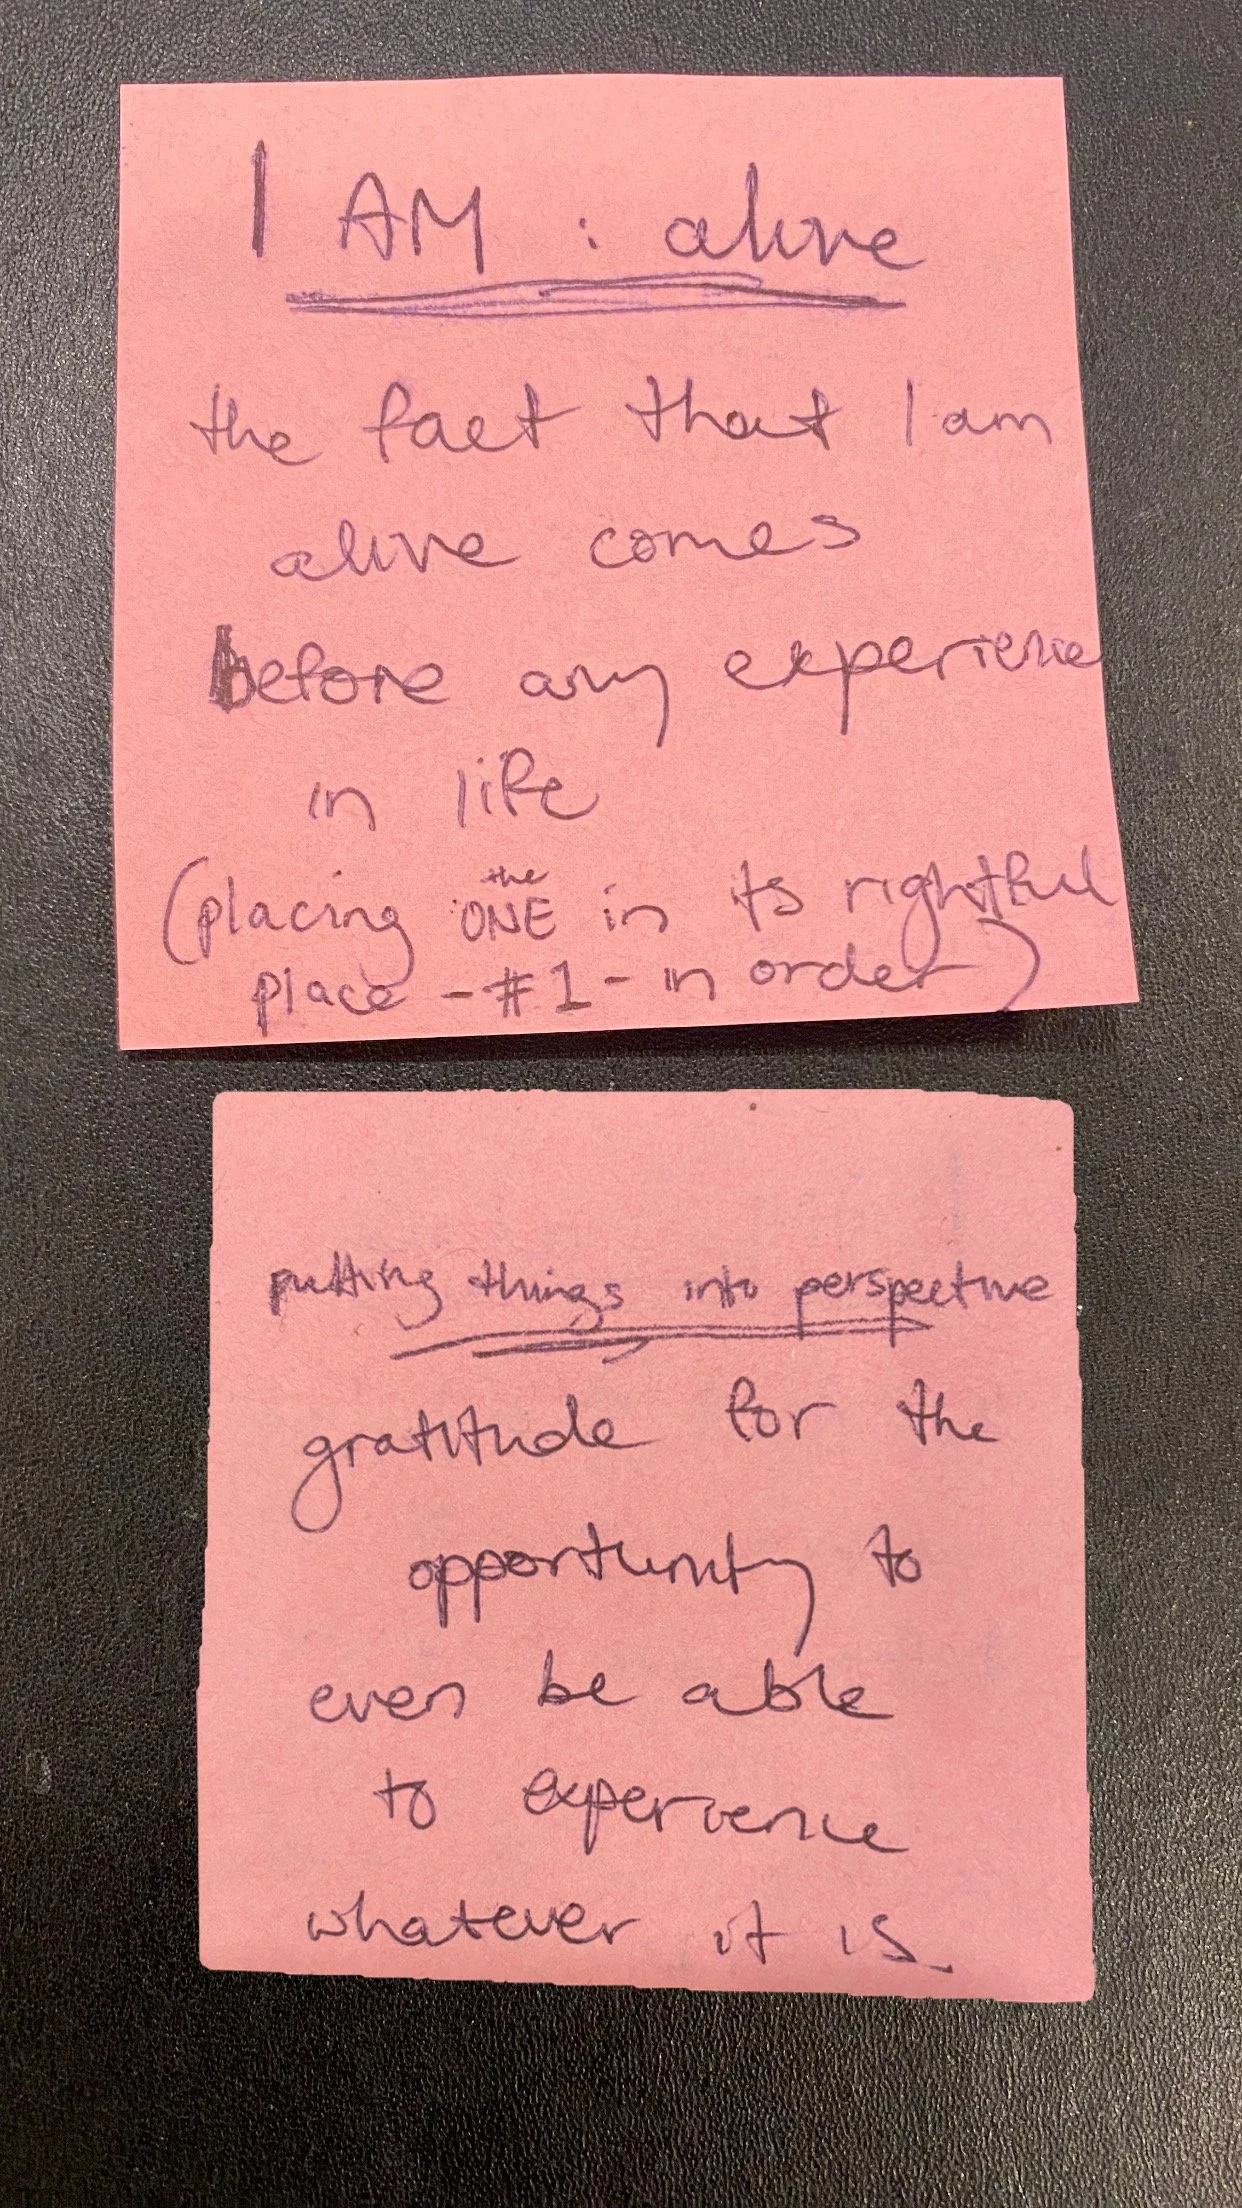 I AM : alive
the fact that I am
alive comes
before any experience
in life
(placing the ONE in its rightful
place - #1 - in order)
putting things into perspective
gratitude for the
opportunity to
even be able
to experience
whatever it is